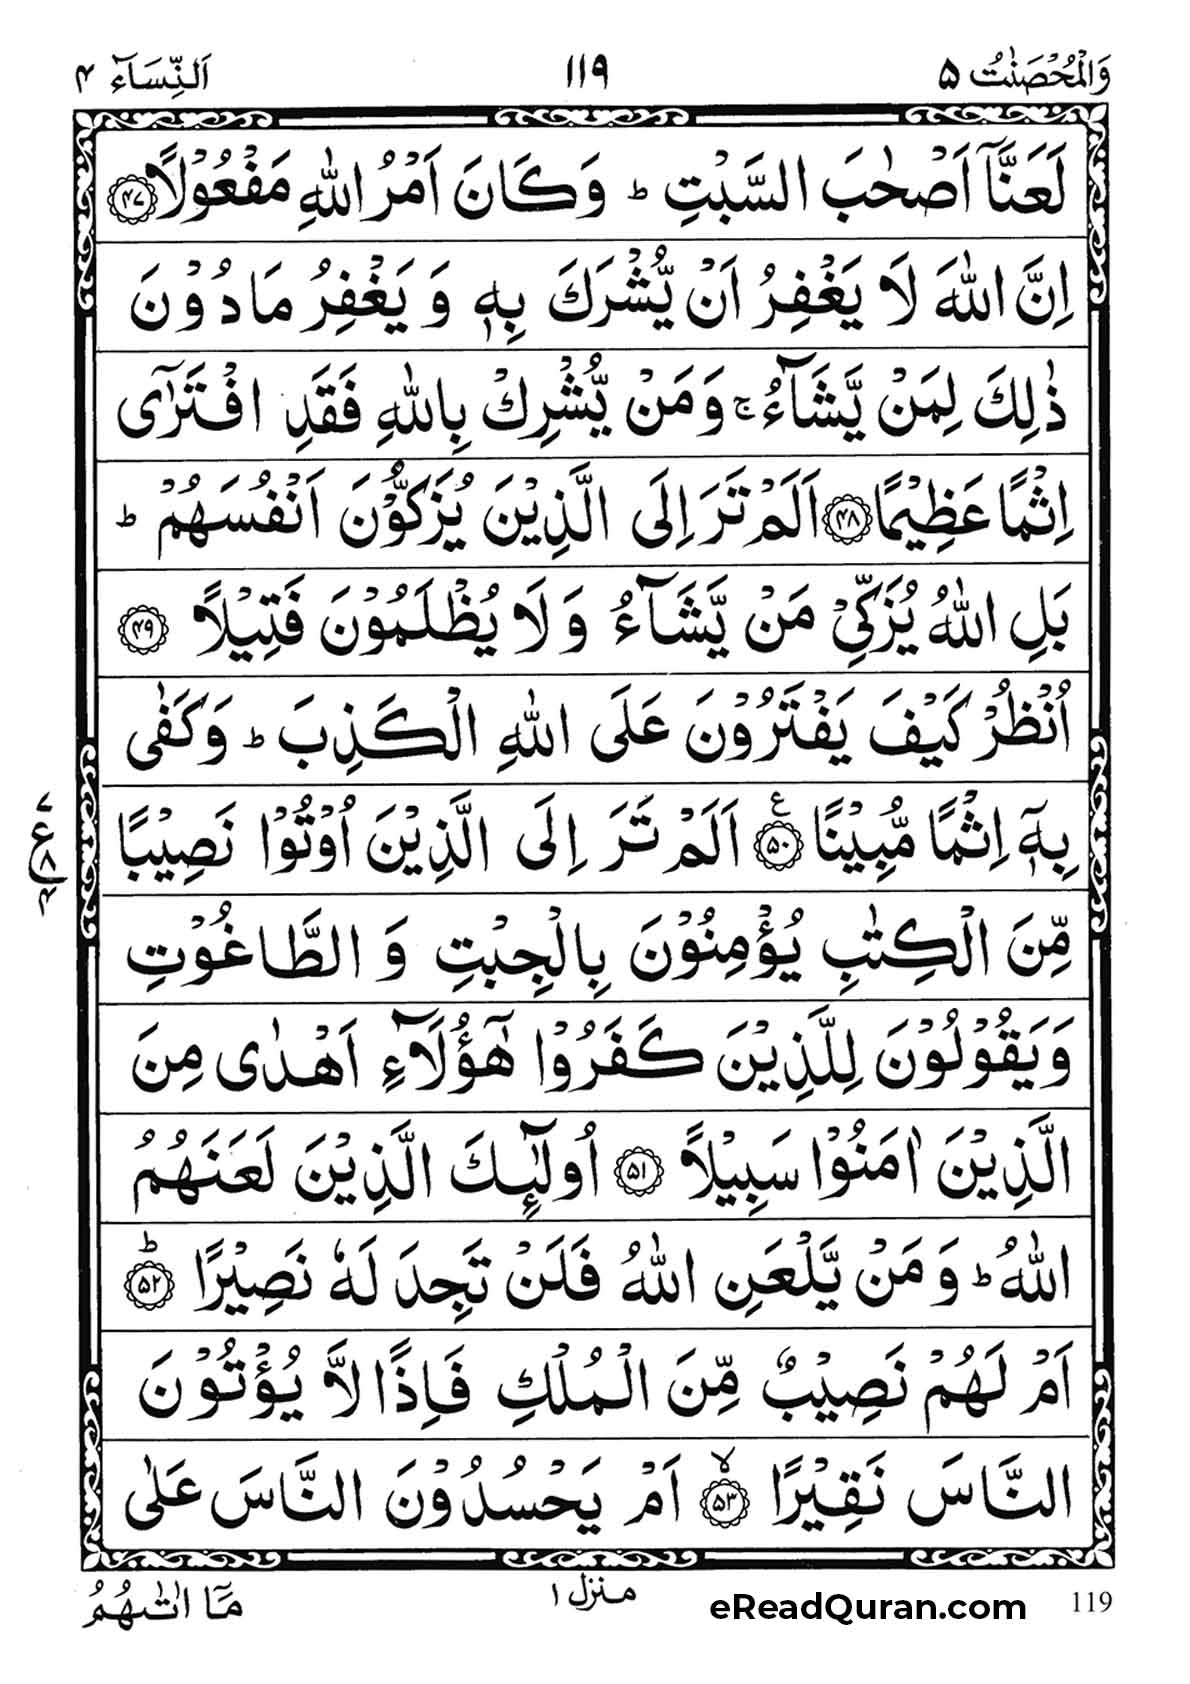 وَالْمُحْصَنٰتُ ۵ ۱۱۹ اَلنِّسَآء ۴
لَعَنَّآ اَصْحٰبَ السَّبْتِ ؕ وَكَانَ اَمْرُ اللّٰهِ مَفْعُوْلًا ﴿۴۷﴾
اِنَّ اللّٰهَ لَا يَغْفِرُ اَنْ يُّشْرَكَ بِهٖ وَ يَغْفِرُ مَا دُوْنَ
ذٰلِكَ لِمَنْ يَّشَآءُ ۚ وَمَنْ يُّشْرِكْ بِاللّٰهِ فَقَدِ افْتَرٰۤى
اِثْمًا عَظِيْمًا ﴿۴۸﴾ اَلَمْ تَرَ اِلَى الَّذِيْنَ يُزَكُّوْنَ اَنْفُسَهُمْ ؕ
بَلِ اللّٰهُ يُزَكِّيْ مَنْ يَّشَآءُ وَلَا يُظْلَمُوْنَ فَتِيْلًا ﴿۴۹﴾
اُنْظُرْ كَيْفَ يَفْتَرُوْنَ عَلَى اللّٰهِ الْكَذِبَ ؕ وَكَفٰى
بِهٖۤ اِثْمًا مُّبِيْنًا ﴿۵۰﴾ ع اَلَمْ تَرَ اِلَى الَّذِيْنَ اُوْتُوْا نَصِيْبًا
۷ ع ۸ ۴
مِّنَ الْكِتٰبِ يُؤْمِنُوْنَ بِالْجِبْتِ وَ الطَّاغُوْتِ
وَيَقُوْلُوْنَ لِلَّذِيْنَ كَفَرُوْا هٰٓؤُلَآءِ اَهْدٰى مِنَ
الَّذِيْنَ اٰمَنُوْا سَبِيْلًا ﴿۵۱﴾ اُولٰٓئِكَ الَّذِيْنَ لَعَنَهُمُ
اللّٰهُ ؕ وَمَنْ يَّلْعَنِ اللّٰهُ فَلَنْ تَجِدَ لَهٗ نَصِيْرًا ﴿۵۲﴾ ؕ
اَمْ لَهُمْ نَصِيْبٌ مِّنَ الْمُلْكِ فَاِذًا لَّا يُؤْتُوْنَ
النَّاسَ نَقِيْرًا ﴿۵۳﴾ ۙ اَمْ يَحْسُدُوْنَ النَّاسَ عَلٰى
مَآ اٰتٰىهُمُ منزل ۱ eReadQuran.com 119